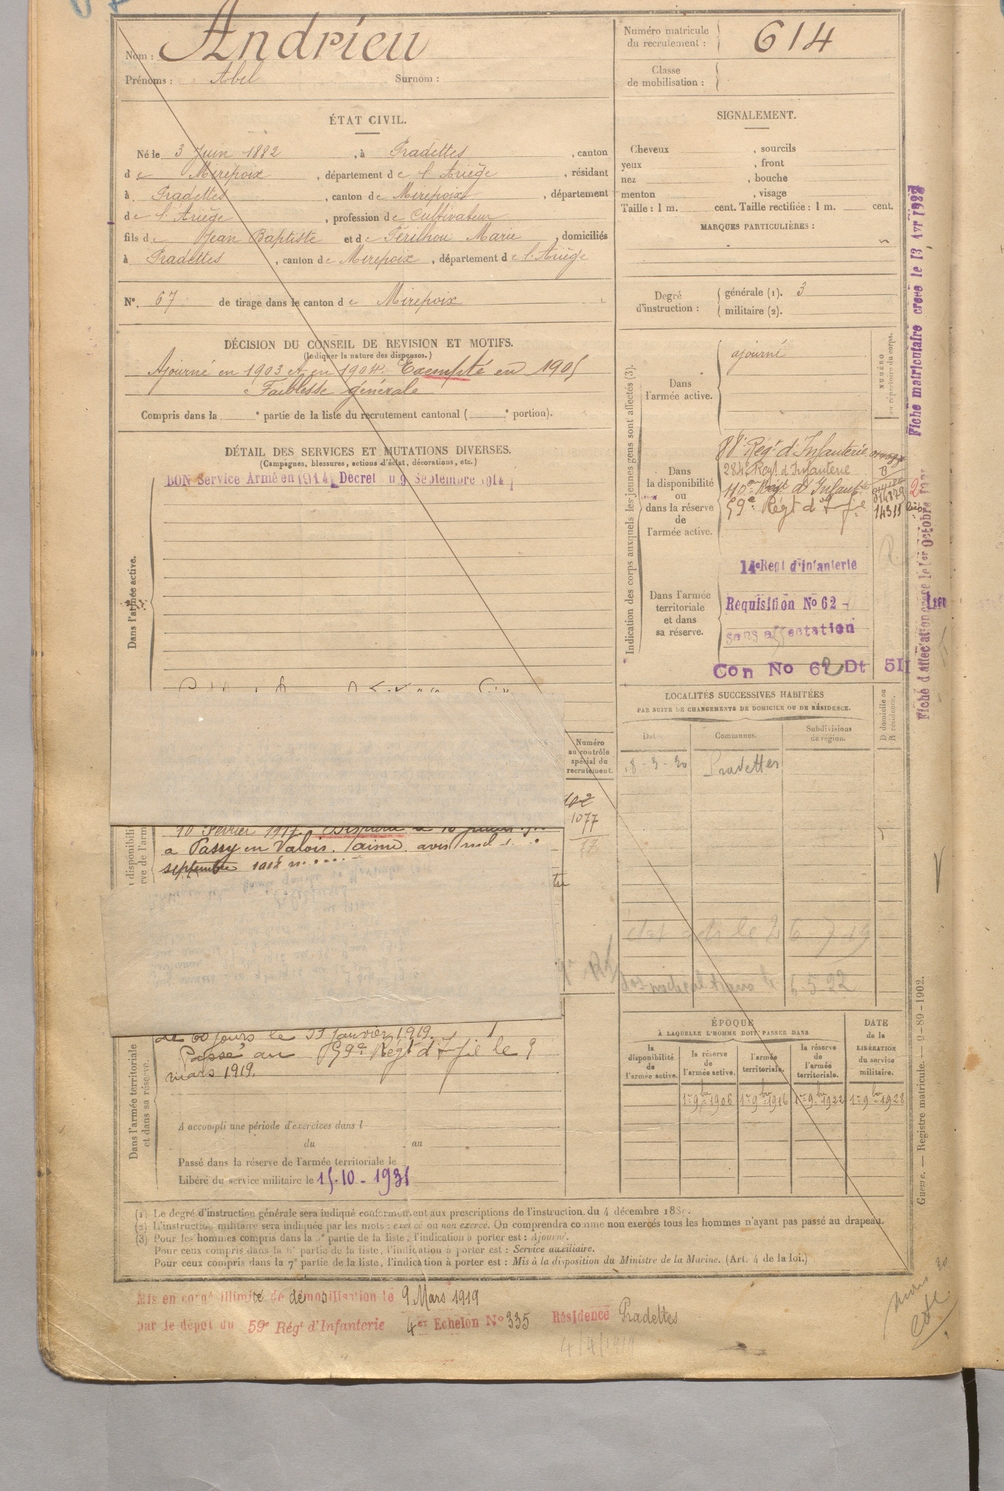 Nom : Andrieu
Prénoms : Abel Surnom :
Numéro matricule
du recrutement : 614
Classe
de mobilisation :
ÉTAT CIVIL.
Né le 3 Juin 1882, à Pradettes, canton
de Mirepoix, département de l'Ariège, résidant
à Pradettes, canton de Mirepoix, département
de l'Ariège, profession de Cultivateur
fils de Jean Baptiste et de Périlhou Marie, domiciliés
à Pradettes, canton de Mirepoix, département de l'Ariège
N° 67 de tirage dans le canton de Mirepoix
DÉCISION DU CONSEIL DE REVISION ET MOTIFS.
(Indiquer la nature des dispenses.)
Ajourné en 1903 et en 1904. Exempté en 1905
Faiblesse générale
Compris dans la e partie de la liste du recrutement cantonal ( e portion).
DÉTAIL DES SERVICES ET MUTATIONS DIVERSES.
(Campagnes, blessures, actions d'éclat, décorations, etc.)
BON Service Armé en 1914 Décret du 9 Septembre 1914
Dans l'armée active.
Numéro
au contrôle
spécial du
recrutement.
1077
10 Février 1917. Disparu le
à Passy en Valois. Aisne avis
septembre 1918
de 60 jours le 11 Janvier 1919.
Passé au 59e Régt d'Infie le 9
mars 1919.
Dans l'armée territoriale
et dans sa réserve.
A accompli une période d'exercices dans l
du au
Passé dans la réserve de l'armée territoriale le
Libéré du service militaire le 15-10-1931
SIGNALEMENT.
Cheveux , sourcils
yeux , front
nez , bouche
menton , visage
Taille : 1 m. cent. Taille rectifiée : 1 m. cent.
MARQUES PARTICULIÈRES :
Degré
d'instruction :
générale (1). 3
militaire (2).
Indication des corps auxquels les jeunes gens sont affectés (3).
Dans
l'armée active.
ajourné
Dans
la disponibilité
ou
dans la réserve
de
l'armée active.
88e Régt d'Infanterie
284e Régt d'Infanterie
110e Régt d'Infant
59e Régt d'Infie
14311
Dans l'armée
territoriale
et dans
sa réserve.
14e Regt d'infanterie
Requisition No 62 -
sans affectation
Con No 62 Dt 511
Fiche matriculaire créée le 13 Avr 1927
LOCALITÉS SUCCESSIVES HABITÉES
PAR SUITE DE CHANGEMENTS DE DOMICILE OU DE RÉSIDENCE.
Dates Communes. Subdivisions
de région.
D domicile ou
R résidence.
18-3-30 Pradettes
ÉPOQUE
À LAQUELLE L'HOMME DOIT PASSER DANS
DATE
de la
LIBÉRATION
du service
militaire.
la
disponibilité
de
l'armée active.
la réserve
de
l'armée active.
l'armée
territoriale.
la réserve
de
l'armée
territoriale.
1er 9bre 1906 1er 9bre 1916 1er 9bre 1922 1er 9bre 1928
Guerre. — Registre matricule. — 9-89-1902.
(1) Le degré d'instruction générale sera indiqué conformément aux prescriptions de l'instruction du 4 décembre 1889.
(2) L'instruction militaire sera indiquée par les mots : exercé ou non exercé. On comprendra comme non exercés tous les hommes n'ayant pas passé au drapeau.
(3) Pour les hommes compris dans la 2e partie de la liste, l'indication à porter est : Ajourné.
Pour ceux compris dans la 6e partie de la liste, l'indication à porter est : Service auxiliaire.
Pour ceux compris dans la 7e partie de la liste, l'indication à porter est : Mis à la disposition du Ministre de la Marine. (Art. 4 de la loi.)
Mis en congé illimité de démobilisation le 9 Mars 1919
par le dépot du 59e Régt d'Infanterie 4e Echelon N° 335 Résidence Pradettes
4/4/1919